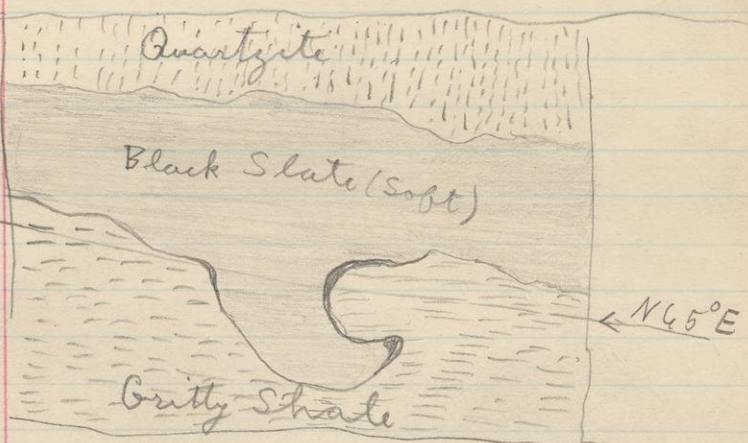 Quartzite
Black Slate (Soft)
N65°E
Gritty Shale